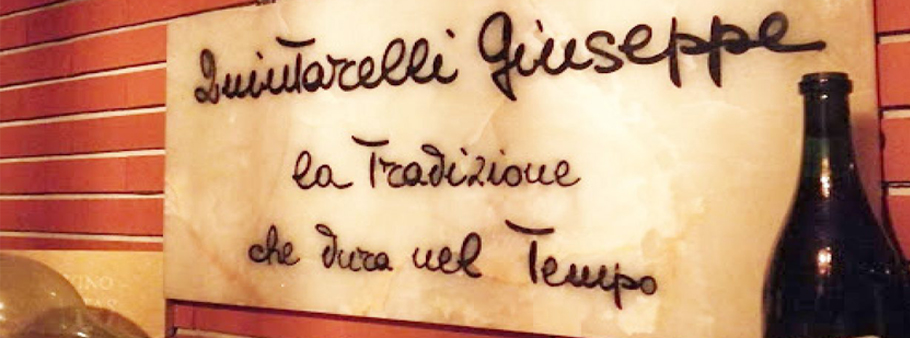 Quintarelli Giuseppe
la Tradizione
che dura nel Tempo
VINO